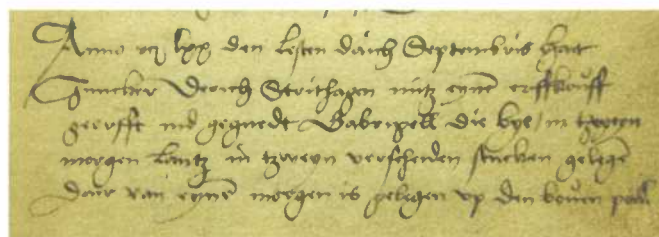 Anno xvc lxx den lesten daich Septembris hait
Juncker Derich Strithagen mitz eynē erffkouff
geerfft ind geguedt Gabrieell die bye, in tzweyn
morgen lantz in tzweyn verscheiden stucken gelegē
daır van eynē morgen is gelegen vp den bouen pall